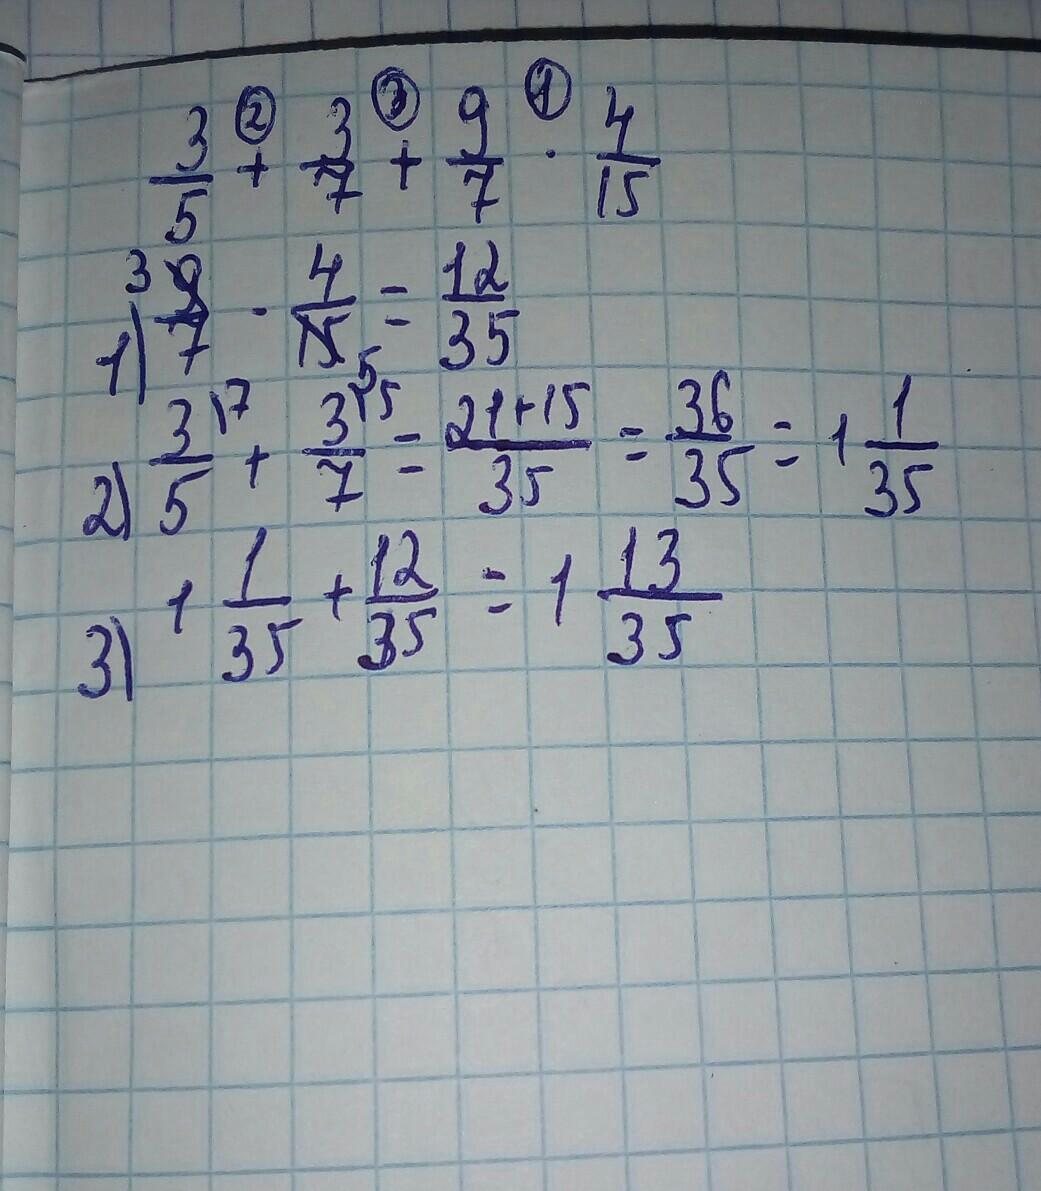 3/5 +② 3/7 +③ 9/7 ·① 4/15
1) 3 9/7 · 4/15 5 = 12/35
2) 3/5 \7 + 3/7 \5 = 21+15/35 = 36/35 = 1 1/35
3) 1 1/35 + 12/35 = 1 13/35